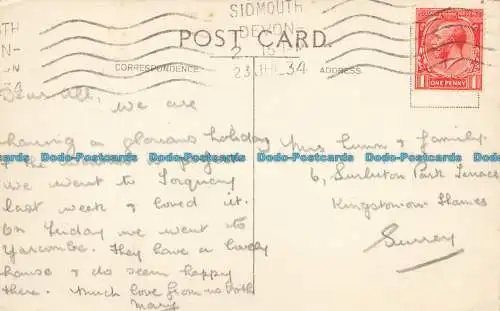 SIDMOUTH
DEVON
2 15
23 JUL 34
POST CARD.
CORRESPONDENCE
ADDRESS
ONE PENNY
Dear All, We are
having a glorious holiday
& the weather is
we went to Torquay
last week & loved it.
On Friday we went to
Yarcombe. They have a lovely
house & do seem happy
there. Much love from us both
Mary
Mrs Gunn & family.
6, Surbiton Park Terrace
Kingston on Thames
Surrey
Dodo-Postcards Dodo-Postcards Dodo-Postcards Dodo-Postcards Dodo-Postcards Dodo-Postcards